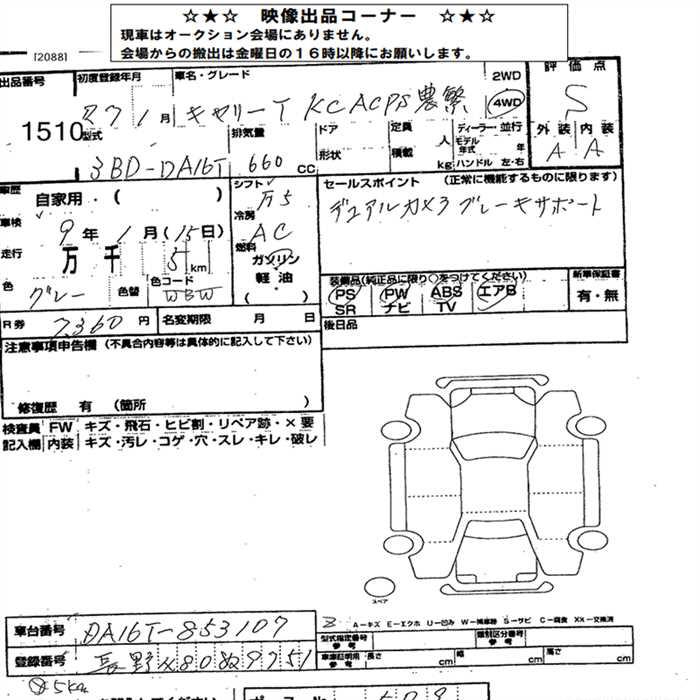 ☆★☆ 映像出品コーナー ☆★☆
現車はオークション会場にありません。
会場からの搬出は金曜日の16時以降にお願いします。
[2088]
出品番号 初度登録年月 車名・グレード 2WD 評価点
1510 R7 1月 キャリーT KCACPS農繁 4WD S
型式 排気量 ドア 定員 人 ディーラー・並行 外装 内装
形状 積載 kg モデル年式 年 A A
3BD-DA16T 660 CC ハンドル 左・右
車歴 自家用・( ) シフト F5 セールスポイント (正常に機能するものに限ります)
車検 9年 1月(15日) 冷房 AC デュアルカメラブレーキサポート
走行 万 千 5 km 燃料 ガソリン
軽油
( )
色 グレー 色替 色コード WBW 装備品(純正品に限り○をつけてください) 新車保証書
PS PW ABS エアB 有・無
SR ナビ TV
R券 7360円 名変期限 月 日 後日品
注意事項申告欄 (不具合内容等は具体的に記入して下さい)
修復歴 有 (箇所 )
検査員 FW キズ・飛石・ヒビ割・リペア跡・×要
記入欄 内装 キズ・汚レ・コゲ・穴・スレ・キレ・破レ
スペア
A-キズ E-エクボ U-凹み W-補修跡 S-サビ C-腐食 XX-交換済
車台番号 DA16T-853107 型式指定番号 参考 類別区分番号 参考
登録番号 長野 480 29751 車庫証明用 参考 長さ cm 幅 cm 高さ cm
5km